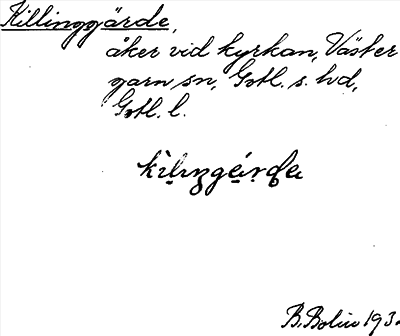 Killinggärde,
åker vid kyrkan, Väster
garn sn, Gotl. s. hd,
Gotl. l.
B. Bolin 193